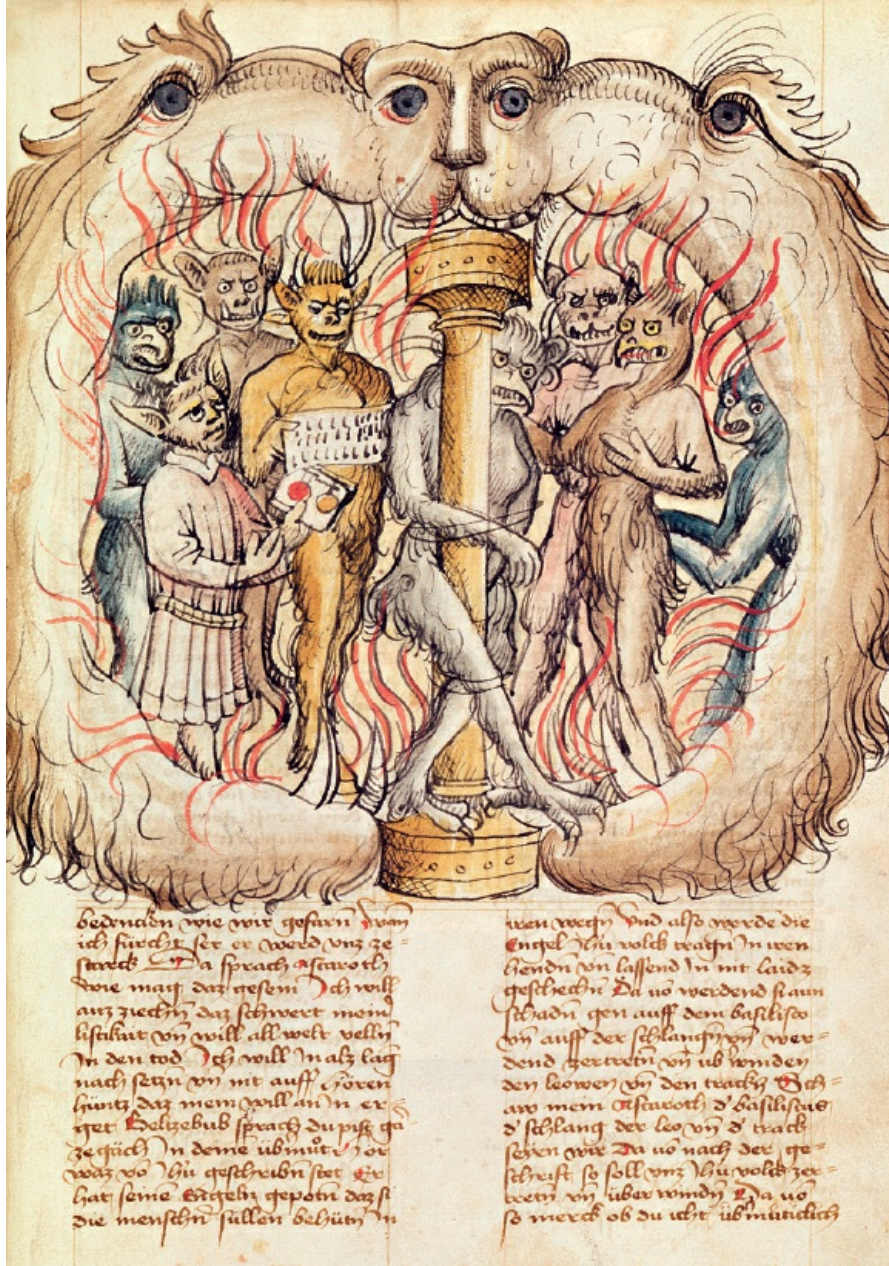 bedenckn wie wir gefarn wan
ich fürcht ser er werd vnz ze=
starck Da sprach Astaroth
wie mag daz gesein Ich will
auz ziechn daz schwert mein
listikait vn̄ will all welt velln
In den tod Ich will In alz lag
nach setzn vn̄ nit auff hören
hüntz daz mein will an In er=
get Beltzebub sprach du pist ga
ze gäch In deine übmüt hor
waz vo Ihū geschribn stet Er
hat seine Engeln gepotn daz si
die menschn süllen behütn In
iren wegn Vnd also werde die
Engel Ihū volck tragn In iren
hendn vn̄ lassend In nit laidz
geschechn Da vō werdend si aun
schadn gen auff dem basilisco
vn̄ auff der schlangn vn̄ wer=
dend zertretn vn̄ ub winden
den leowen vn̄ den trackn Sch=
aw mein Astaroth d' basiliscus
d' schlang der leo vn̄ d' track
seyen wir Da vō nach der ge=
schrift so soll vnz Ihū volck zer=
tretn vn̄ über windn Da vō
so merck ob du icht übmüticlich